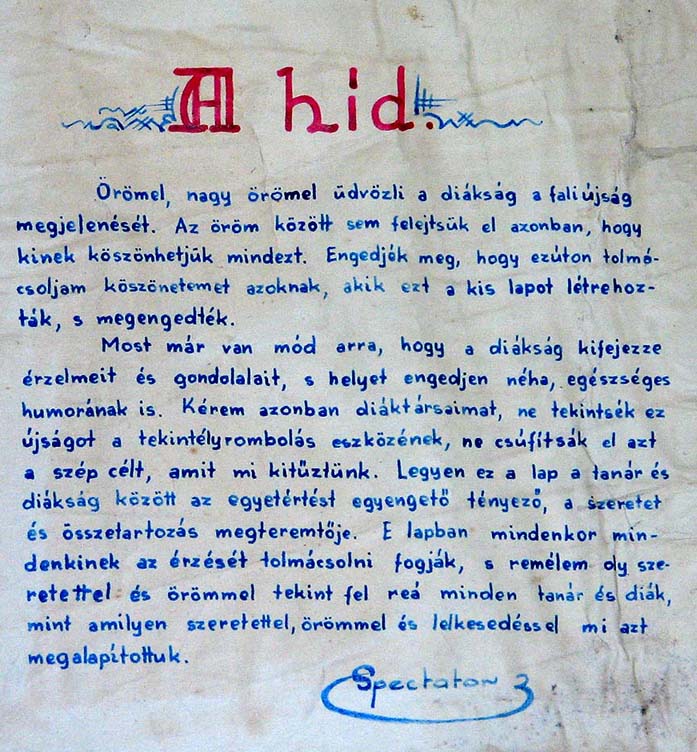 A hid.
Örömel, nagy örömel üdvözli a diákság a faliújság
megjelenését. Az öröm között sem felejtsük el azonban, hogy
kinek köszönhetjük mindezt. Engedjék meg, hogy ezúton tolmá-
csoljam köszönetemet azoknak, akik ezt a kis lapot létrehoz-
ták, s megengedték.
Most már van mód arra, hogy a diákság kifejezze
érzelmeit és gondolalait, s helyet engedjen néha, egészséges
humorának is. Kérem azonban diáktársaimat, ne tekintsék ez
újságot a tekintélyrombolás eszközének, ne csúfítsák el azt
a szép célt, amit mi kitűztünk. Legyen ez a lap a tanár és
diákság között az egyetértést egyengető tényező, a szeretet
és összetartozás megteremtője. E lapban mindenkor min-
denkinek az érzését tolmácsolni fogják, s remélem oly sze-
retettel és örömmel tekint fel reá minden tanár és diák,
mint amilyen szeretettel, örömmel és lelkesedéssel mi azt
megalapítottuk.
Spectator